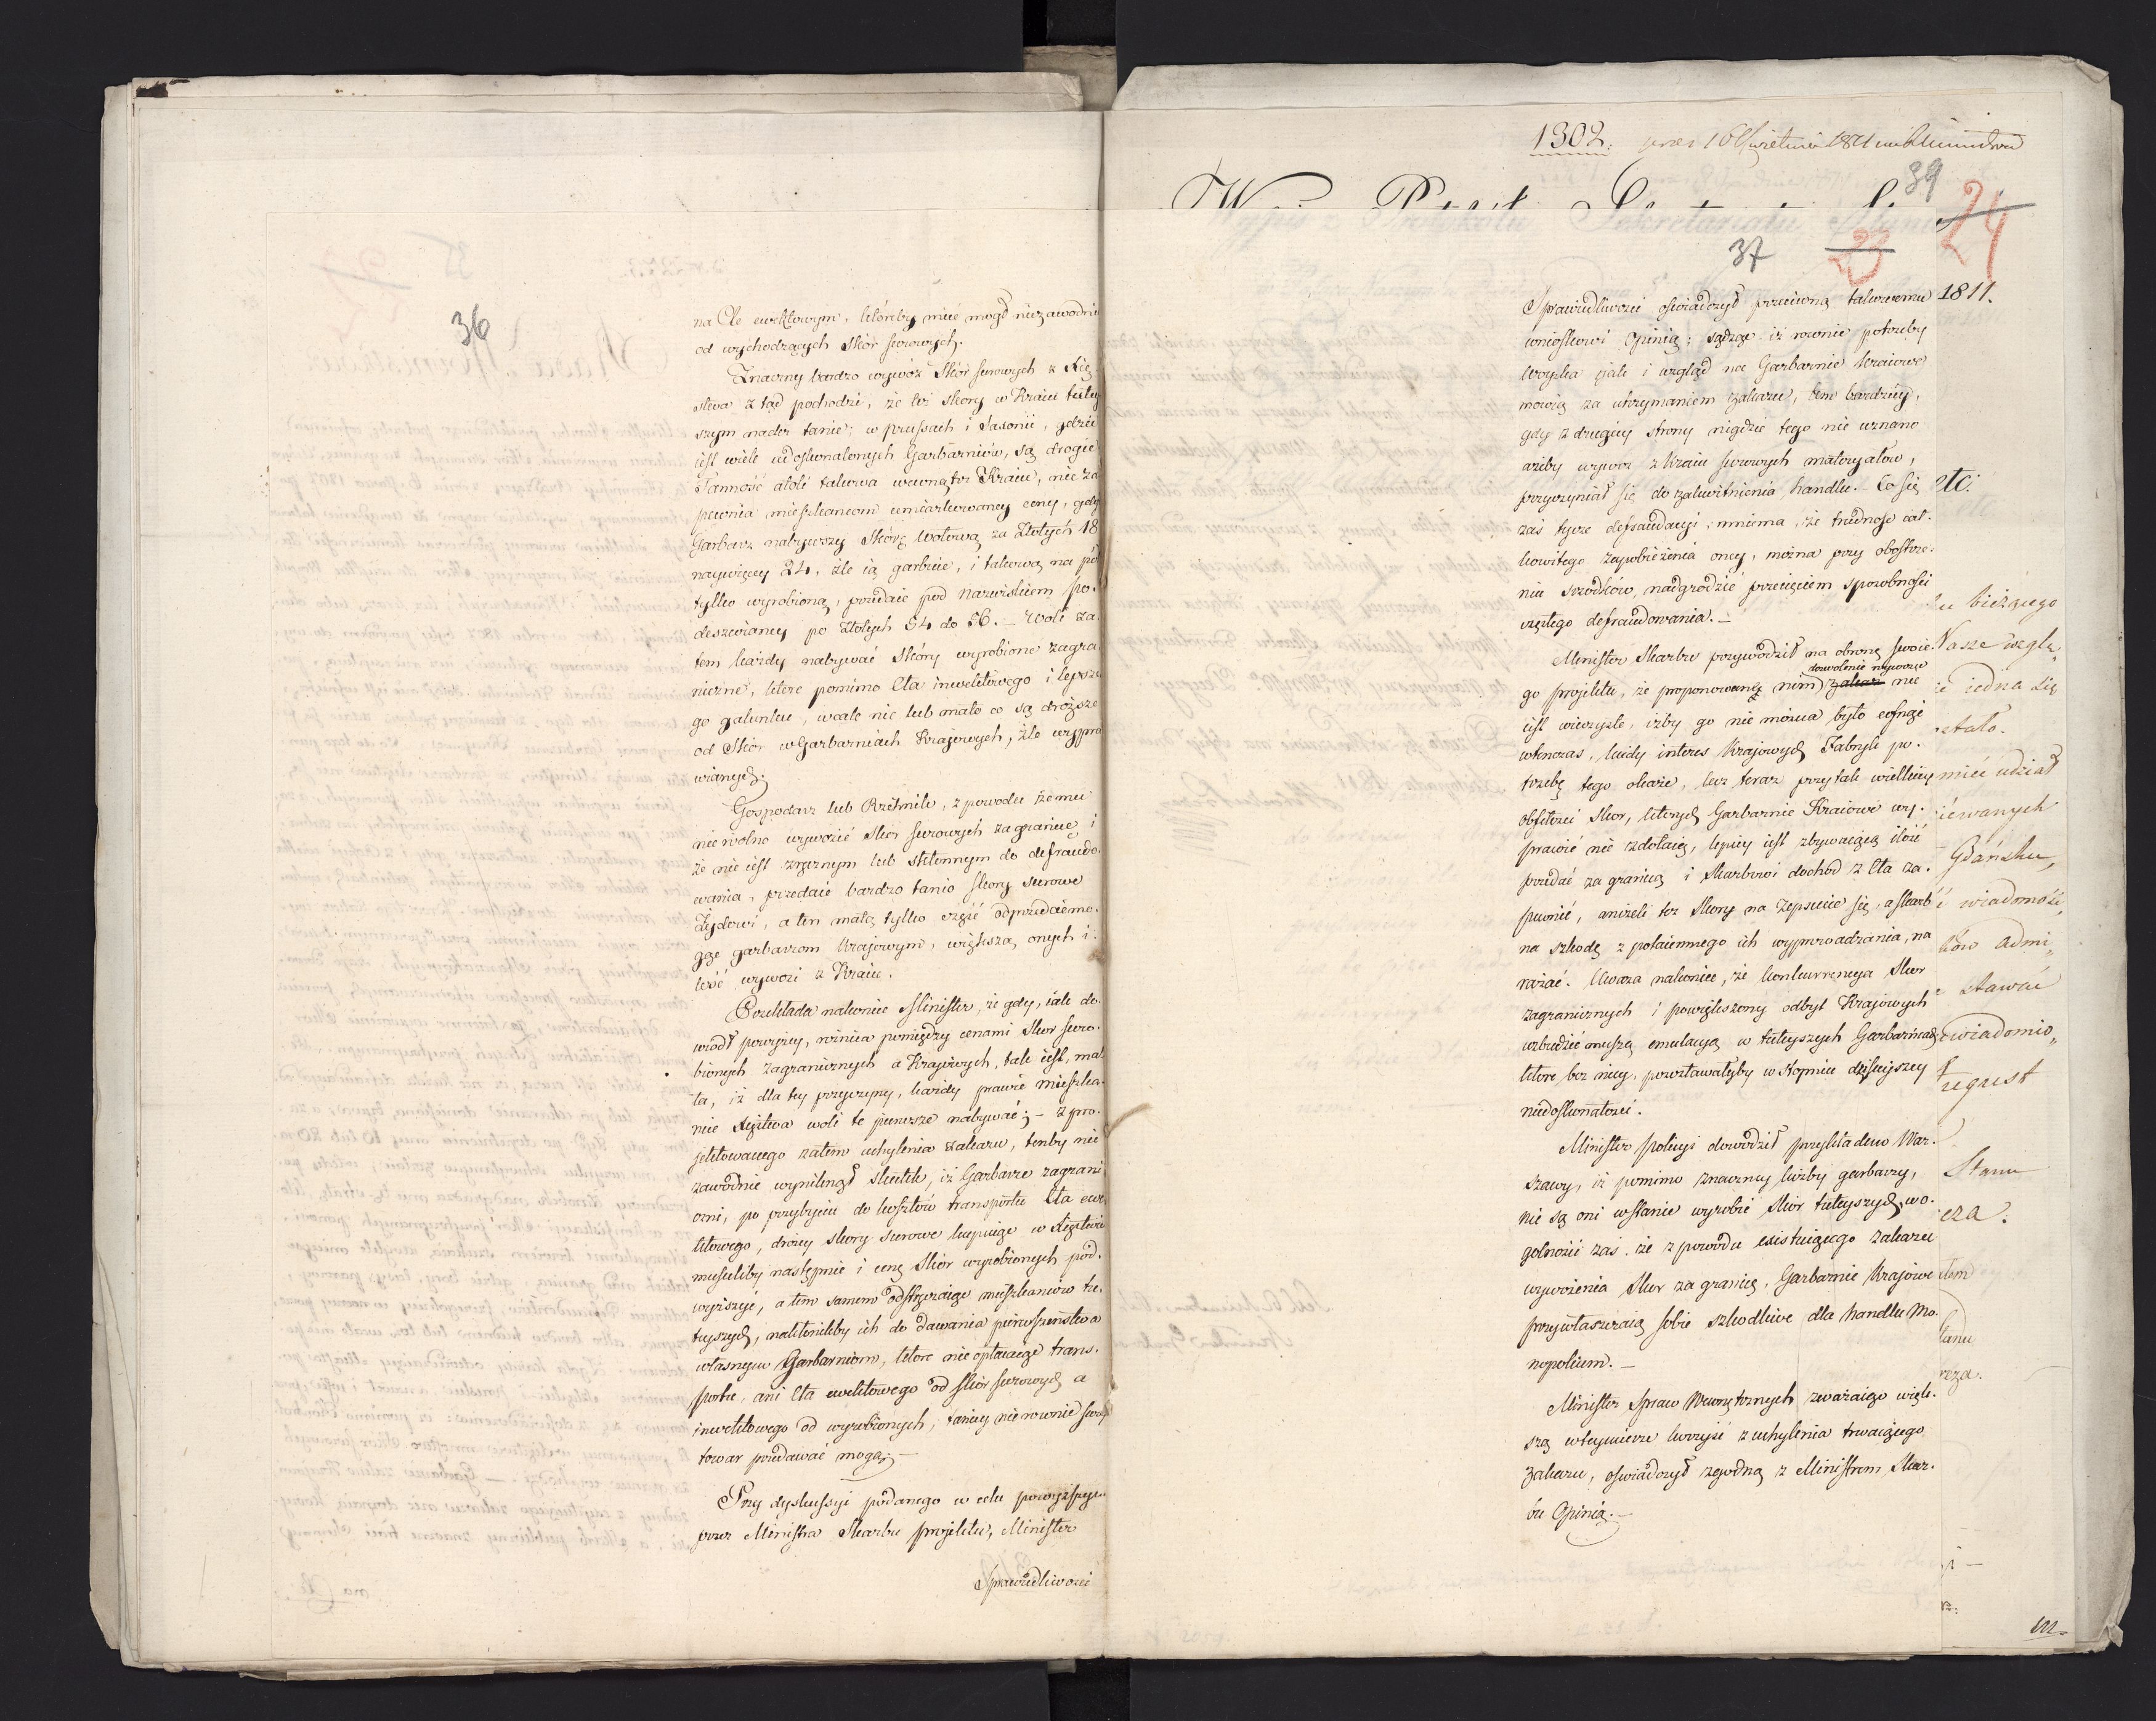 36
na Cle ewektowym, któreby mieć mogł niezawodnie
od wychodzących skór surowych.
Znaczny bardzo wywóz Skór surowych z Xię
stwa z tąd pochodzi, że też skory w Kraiu tutey
szym nader tanie; w prussach i Saxonii, gdzie
iest wiele udoskonalonych Garbarniów, są drogie
Tanność atoli takowa wewnątrz Kraiu, nie za
pewnia mieszkancom umiarkowaney ceny, gdy
Garbarz nabywszy Skórę wołową za Złotych 18
naywięcey 24, źle ią garbuie, i takową na pół
tylko wyrobioną, przedaie pod nazwiskiem po-
deszwianey po Złotych 54 do 56. – Woli za-
tem każdy nabywać Skóry wyrobione zagra
niczne, które pomimo Cła inwektowego i lepsze
go gatunku, wcale nic lub mało co są droższe
od Skór w Garbarniach Krajowych, źle wypra
wianych.
Gospodarz lub Rzeźnik, z powodu że mu
nie wolno wywozić skór surowych za granicę i
że nie iest zręcznym lub skłonnym do defraudo-
wania, przedaie bardzo tanio skory surowe
Żydowi, a ten małą tylko część odprzedaiemo-
gąc garbarzom krajowym, większą onych i-
lość wywozi z Kraiu.
Przekłada nakoniec Minister, że gdy, iak do-
wodł powyżey, różnica pomiędzy cenami Skor suro-
bionych zagranicznych a Krajowych, tak iest, mał
ta, iż dla tey przyczyny, każdy prawie mieszka-
niec Xięstwa woli te pierwsze nabywać; – z pro-
jektowanego zatem uchylenia zakazu, tenby nie
zawodnie wyniknął skutek, iż Garbarze zagrani
czni, po przybyciu do kosztów transportu Cła ewe
ktowego, drożey skory surowe kupuiąc w Xięstwie
musieliby następnie i cenę Skór wyrobionych pod-
wyższyć, a tem samem odstręczaiąc mieszkanców tu-
teyszych, nakłoniliby ich do dawania pierwszeństwa
własnym Garbarniom, które nie opłacaiąc trans-
portu, ani Cła ewektowego od skór surowych a
inwektowego od wyrobionych, taniey nie rownie swoy
towar przedawać mogą. –
Przy dyskussyi podanego w celu powyższym
przez Ministra Skarbu projektu, Minister
Sprawiedliwosci
1302.
39
24
37
23
Sprawiedliwosci oświadczył przeciwną takowemu
wnioskowi Opinią; sądząc iż rownie potrzeby
woyska iak i wzgląd na Garbarnie kraiowe
mowią za utrzymaniem zakazu, tem bardziey,
gdy z drugiey strony nigdzie tego nie uznano
ażeby wywoz z kraiu surowych materyałow,
przyczyniał się do zakwitnienia handlu. – Co się
zaś tycze defraudacyi, mniema, że trudnosc cał-
kowitego zapobieżenia oney, można przy obostrze-
niu srodków, nadgrodzić przecięciem sposobnosci
częstego defraudowania. –
Minister Skarbu przywodził na obronę swoie-
dozwolenie wywozu
go projektu, że proponowane nim zakaz nie
iest wieczyste, iżby go nie można było cofnąć
wtenczas, kiedy interes Krajowych Fabryk po-
trzebę tego okaże, lecz teraz przy tak wielkiey
obfitosci skor, których Garbarnie Kraiowe wy-
prawić nie zdołaią, lepiey iest zbywaiącą ilość
przedać za granicę i Skarbowi dochod z Cła za-
pewnić, aniżeli też skory na zepsucie się, a skarb
na szkodę z potaiemnego ich wyprowadzania, na
rażać. Uważa nakoniec, że konkurrencya skor
zagranicznych i powiększony odbyt Krajowych
wzbudzić muszą emulacyą w tuteyszych Garbarniach
które bez niey, pozostawałyby w stopniu dzisieyszey
niedoskonałosci.
Minister policyi dowodził przykładem War-
szawy, iż pomimo znaczney liczby garbarzy,
nie są oni w stanie wyrobić skor tuteyszych, wo-
golności zaś, że z powodu existuiącego zakazu
wywożenia skor za granicę, Garbarnie Krajowe
przywłaszczaią sobie szkodliwe dla handlu Mo-
nopolium. –
Minister Spraw Wewnętrznych zważaiąc więk-
szą w teymierze korzyść z uchylenia trwaiącego
zakazu, oświadczył zgodną z Ministrem Skar-
bu Opinią. –
1811.
etc.
bieżącego
Nasze wzglę„
iedna się
stało.
mieć udział
Gdańsku,
wiadomość
Admi„
stawać
wiadomio„
August
Stanu